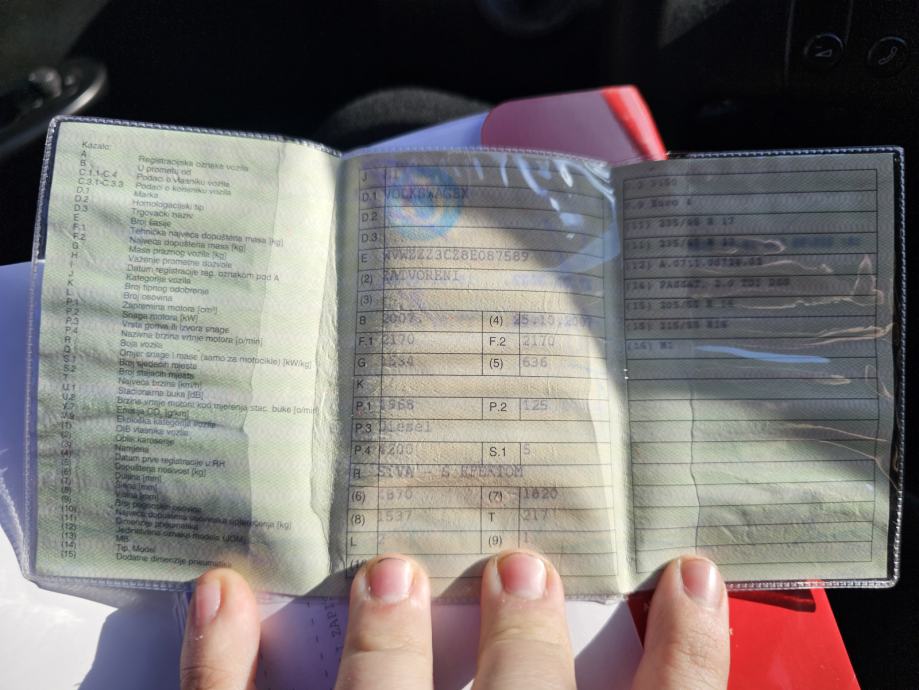 Kazalo:
A Registracijska oznaka vozila
B U prometu od
C.1.1-C.4 Podaci o vlasniku vozila
C.3.1-C.3.3 Podaci o korisniku vozila
D.1 Marka
D.2 Homologacijski tip
D.3 Trgovački naziv
E Broj šasije
F.1 Tehnička najveća dopuštena masa [kg]
F.2 Najveća dopuštena masa [kg]
G Masa praznog vozila [kg]
H Važenje prometne dozvole
I Datum registracije reg. oznakom pod A
J Kategorije vozila
K Broj tipnog odobrenje
L Broj osovina
P.1 Zapremina motora [cm³]
P.2 Snaga motora [kW]
P.3 Vrsta goriva ili izvora snage
P.4 Nazivna brzina vrtnje motora [o/min]
R Boja vozila
Q Omjer snage i mase (samo za motocikle) [kW/kg]
S.1 Broj sjedećih mjesta
S.2 Broj stajaćih mjesta
T Najveća brzina [km/h]
U.1 Stacionarna buka [dB]
U.2 Brzina vrtnje motora kod mjerenja stac. buke [o/min]
V.7 Emisija CO₂ [g/km]
V.9 Ekološka kategorija vozila
(1) OIB vlasnika vozila
(2) Oblik karoserije
(3) Namjena
(4) Datum prve registracije u RH
(5) Dopuštena nosivost [kg]
(6) Duljina [mm]
(7) Širina [mm]
(8) Visina [mm]
(9) Broj pogonskih osovina
(12) Jedinstvena oznaka modela (JOM)
(13) MB
(14) Tip, Model
(15) Dodatne dimenzije pneumatika
J
D.1 VOLKSWAGEN
D.2
D.3
E WVWZZZ3CZ8E087589
(2) ZATVORENI
(3)
B 2007. (4) 25.10.2007
F.1 2170 F.2 2170
G 1534 (5) 636
K
P.1 1968 P.2 125
P.3 Diesel
P.4 4200 S.1 5
R SIVA - S EFEKTOM
(6) (7) 1820
(8) 1537 T 217
L 2 (9) 1
Euro 4
(11) 235/45 R 17
PASSAT, 2.0 TDI DSG
(15) 205/55 R 16
(15) 215/55 R16
(16) M1